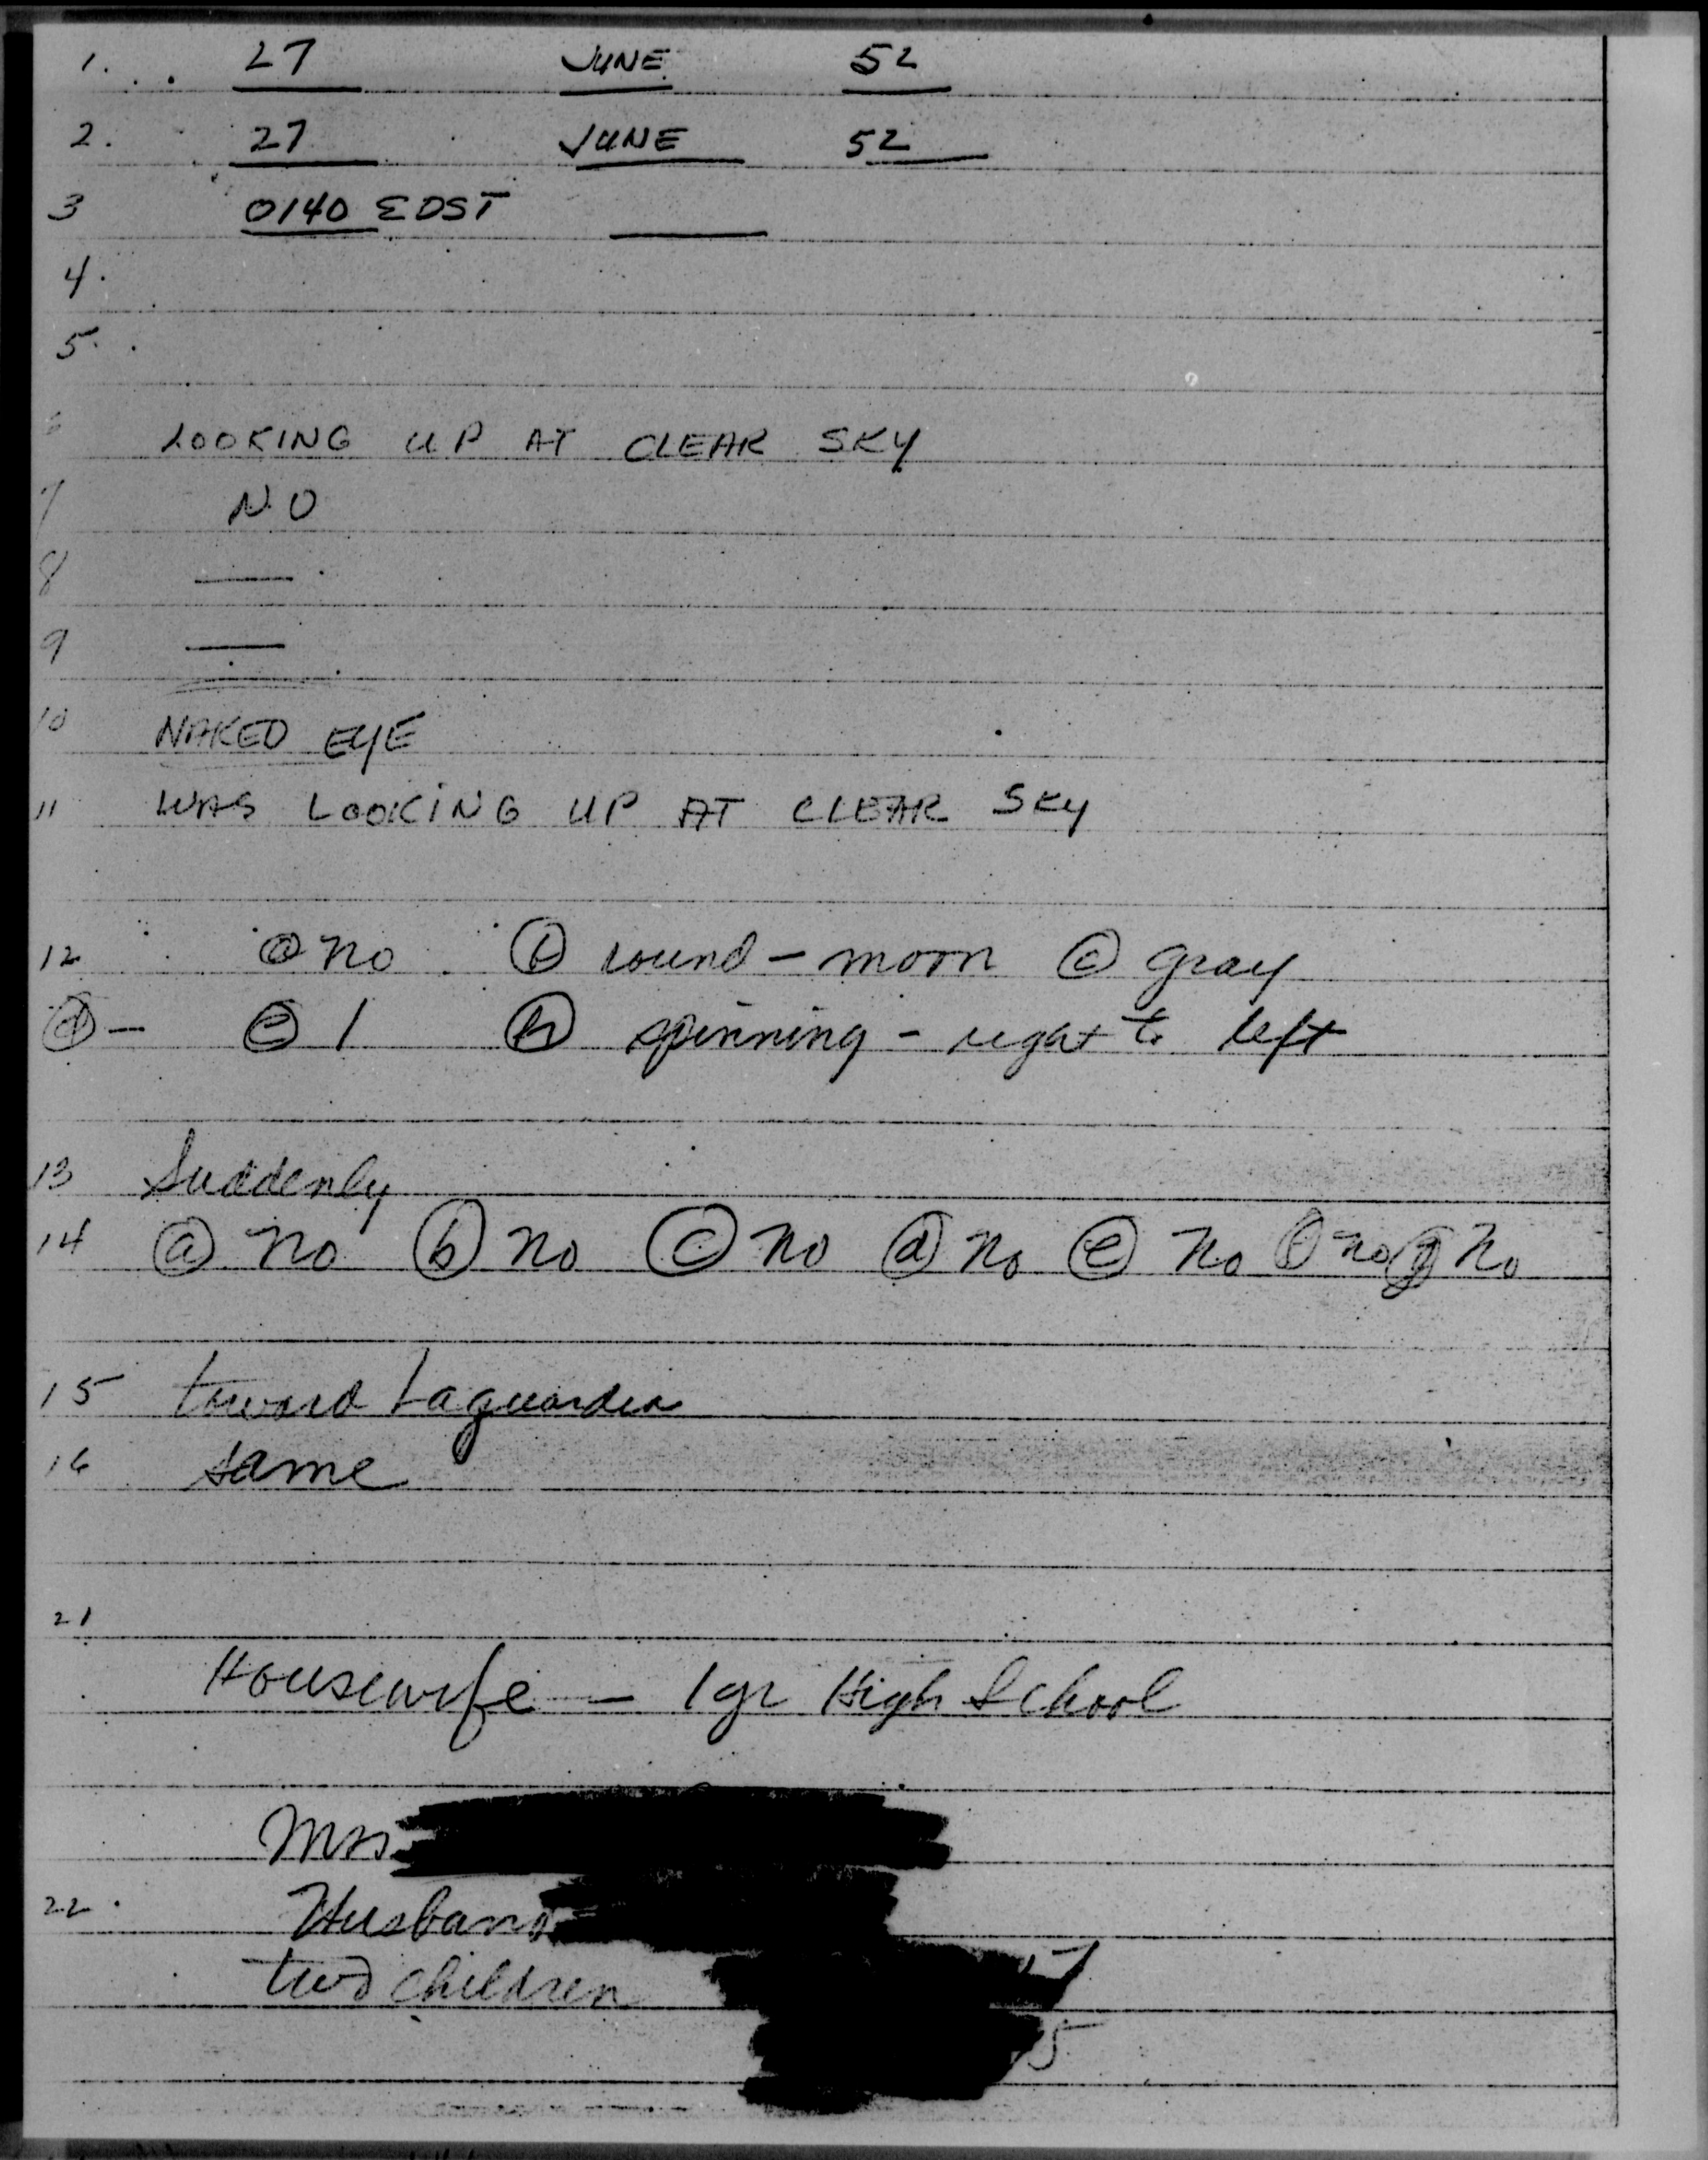 1. 27 JUNE 52
2. 27 JUNE 52
3 0140 EDST
4.
5.
6 LOOKING UP AT CLEAR SKY
7 NO
8 —
9 —
10 NAKED EYE
11 WAS LOOKING UP AT CLEAR SKY
12 ⓐ no ⓑ round - moon ⓒ gray
ⓓ - ⓔ 1 ⓗ spinning - right to left
13 Suddenly
14 ⓐ no ⓑ no ⓒ no ⓓ no ⓔ no ⓕ no ⓖ no
15 toward Laguardia
16 same
21
Housewife - 1 yr High School
Mrs
22. Husband
two children
5